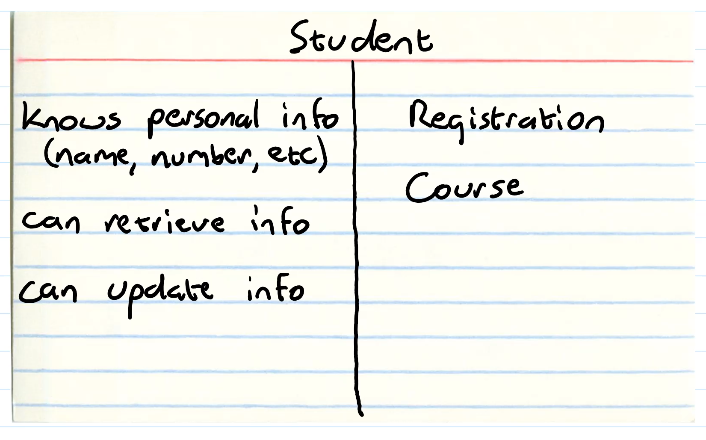 Student
knows personal info
(name, number, etc)
can retrieve info
can update info
Registration
Course